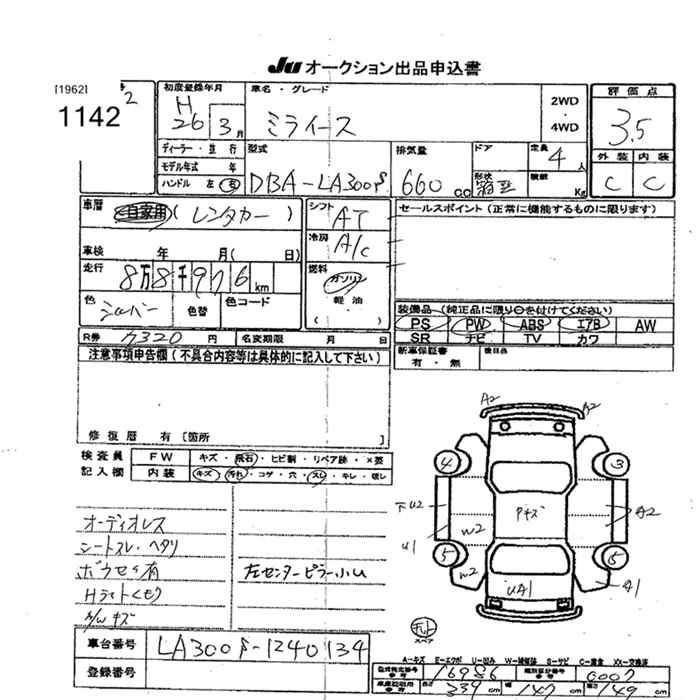 JU オークション出品申込書
[1962]
1142
2
初度登録年月
H
26 3月
ディーラー・並行
モデル年式 年
ハンドル 左 右
車名・グレード
ミライース
2WD
4WD
評価点
3.5
外装 内装
C C
型式
DBA-LA300S
排気量
660 cc
ドア
形状
箱型
定員
4人
積載
Kg
車歴
自家用 (レンタカー)
車検 年 月( 日)
走行
8万8千976 km
色
シルバー
色替
色コード
シフト
AT
冷房
A/C
燃料
ガソリン
軽油
( )
セールスポイント(正常に機能するものに限ります)
装備品(純正品に限り○を付けてください)
PS PW ABS エアB AW
SR ナビ TV カワ
R券 7320 円
名変期限 月 日
新車保証書
有・無
後日品
注意事項申告欄(不具合内容等は具体的に記入して下さい)
修復歴 有 [箇所 ]
検査員
記入欄
FW キズ・飛石・ヒビ割・リペア跡・×要
内装 キズ・汚れ・コゲ・穴・スレ・キレ・破レ
オーディオレス
シートスレ・ヘタリ
ボウセイ有
Hライトくもり
A/Wキズ
左センターピラー小U
A2
A2
4
3
下U2
A2
Pキズ
W2
U1
5
5
W2
UA1
A1
スペア
車台番号
LA300S-1240134
登録番号
A-キズ E-エクボ U-凹み W-補修跡 S-サビ C-腐食 XX-交換
型式指定番号 16986
類別区分番号 0007
339 cm
147 cm
149 cm